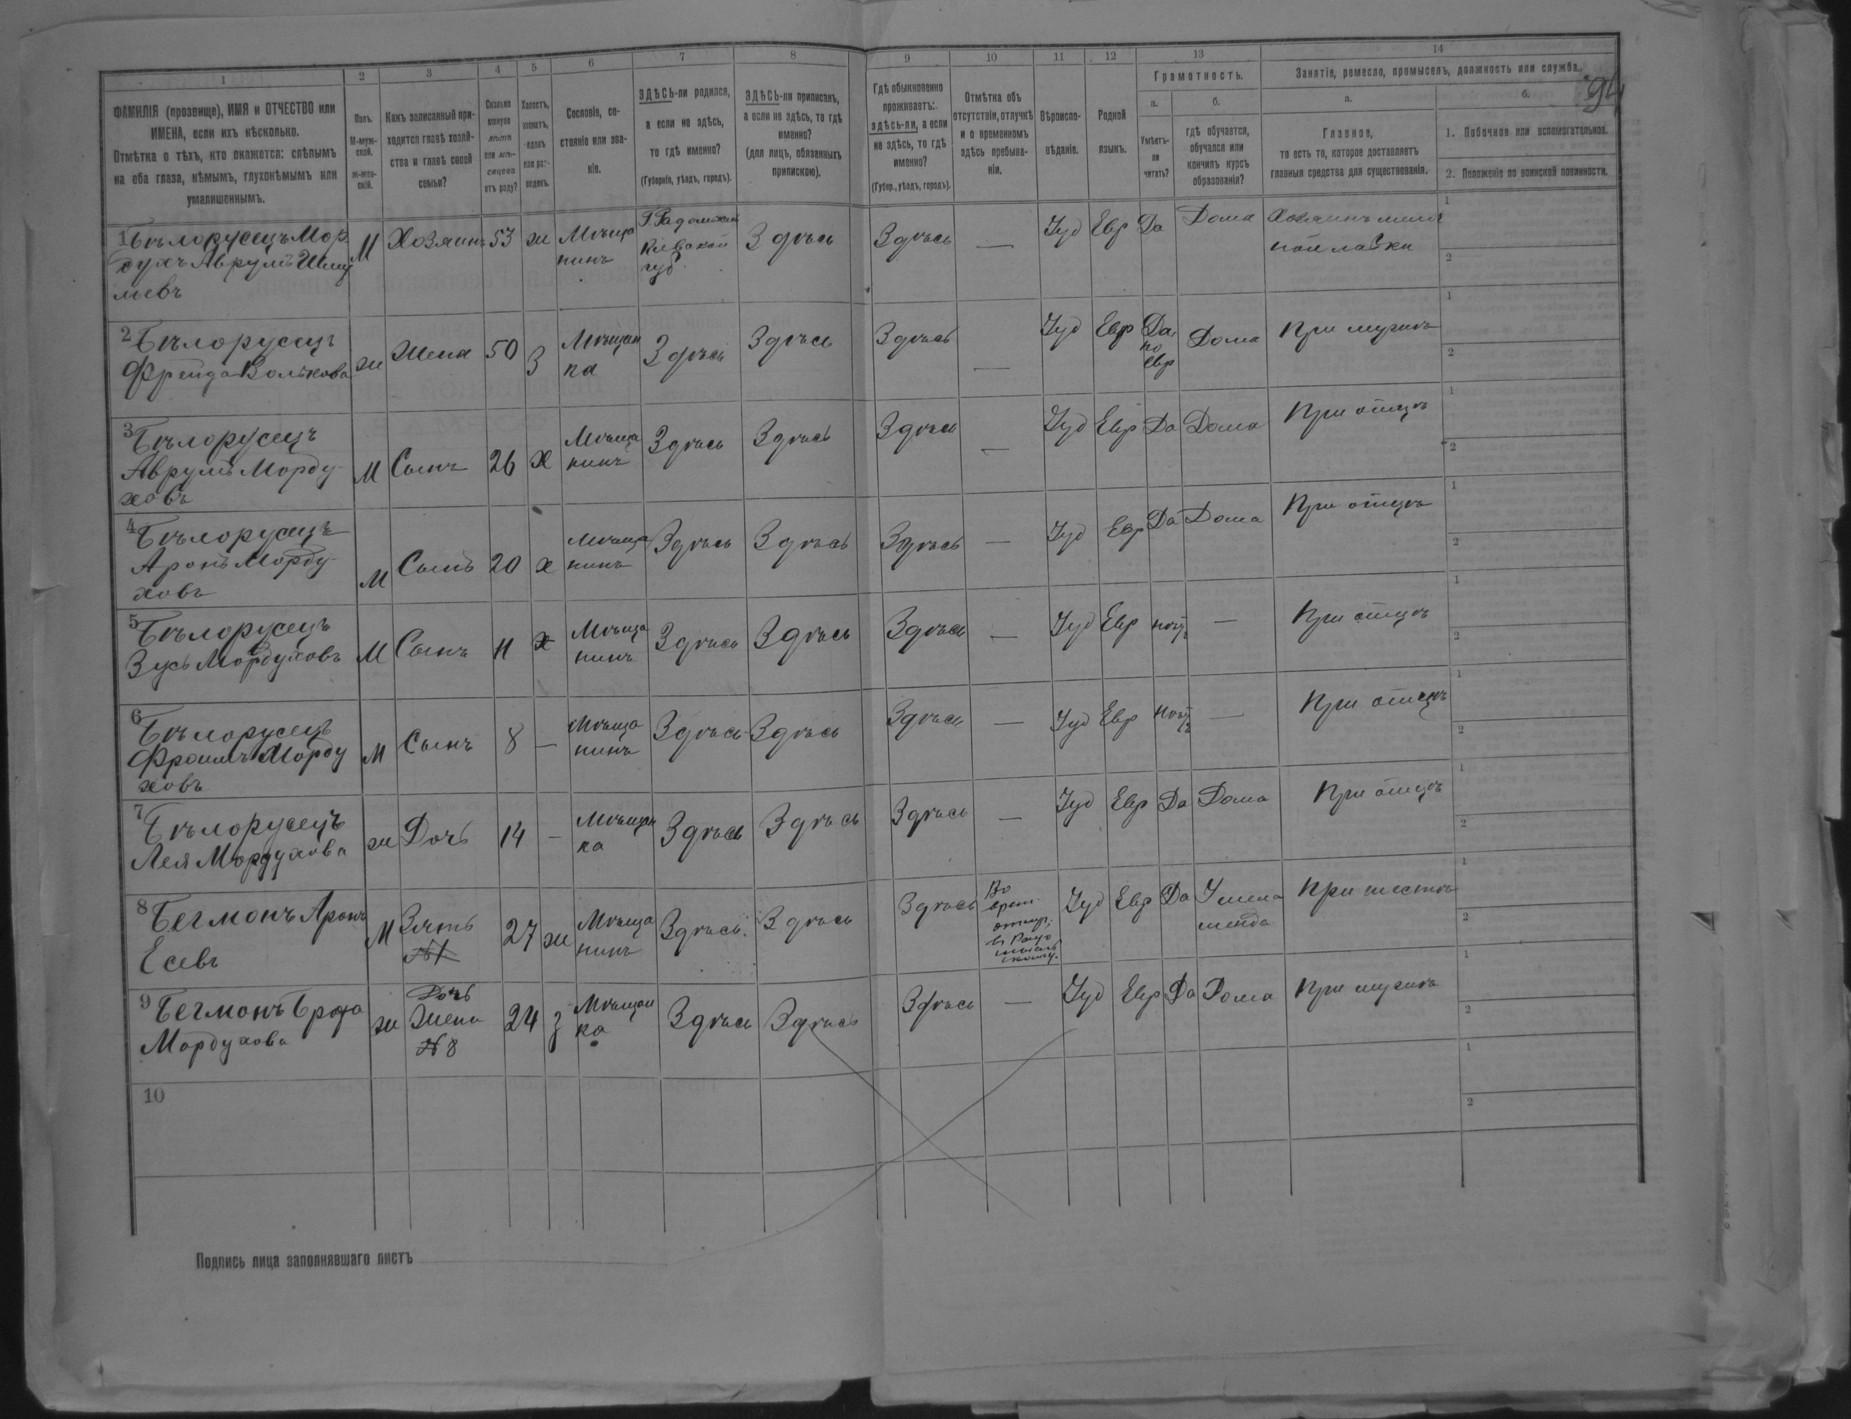 1 2 3 4 5 6 7 8 9 10 11 12 13 14
ФАМИЛІЯ (прозвище), ИМЯ и ОТЧЕСТВО или
ИМЕНА, если ихъ нѣсколько.
Отмѣтка о тѣхъ, кто окажется: слѣпымъ
на оба глаза, нѣмымъ, глухонѣмымъ или
умалишеннымъ.
Полъ.
М-муж-
ской.
ж-жен-
скій.
Какъ записанный при-
ходится главѣ хозяй-
ства и главѣ своей
семьи?
Сколько
минуло
лѣтъ
или мѣ-
сяцевъ
отъ роду?
Холостъ,
женатъ,
вдовъ
или раз-
веденъ.
Сословіе, со-
стояніе или зва-
ніе.
ЗДѢСЬ-ли родился,
а если не здѣсь,
то гдѣ именно?
(Губернія, уѣздъ, городъ).
ЗДѢСЬ-ли приписанъ,
а если не здѣсь, то гдѣ
именно?
(для лицъ, обязанныхъ
припискою).
Гдѣ обыкновенно
проживаетъ:
здѣсь-ли, а если
не здѣсь, то гдѣ
именно?
(Губер., уѣздъ, городъ).
Отмѣтка объ
отсутствіи, отлучкѣ
и о временномъ
здѣсь пребыва-
ніи.
Вѣроиспо-
вѣданіе.
Родной
языкъ.
Грамотность.
а.
Умѣетъ-
ли
читать?
б.
гдѣ обучается,
обучался или
кончилъ курсъ
образованія?
Занятіе, ремесло, промыселъ, должность или служба.
а.
Главное,
то есть то, которое доставляетъ
главныя средства для существованія.
б.
1. Побочное или вспомогательное.
2. Положеніе по воинской повинности.
94
1 Бѣлорусецъ Мор
духъ Аврумъ Шму
левъ
М Хозяинъ 53 ж Мѣща
нинъ
Кіевской
губ
Здѣсь Здѣсь — Іуд Евр Да Дома Хозяинъ
лавки
1
2
2 Бѣлорусецъ
Фрейда Волькова
ж Жена 50 З Мѣщан
ка
Здѣсь Здѣсь Здѣсь — Іуд Евр Да
по
Евр
Дома При мужѣ
1
2
3 Бѣлорусецъ
Аврумъ Морду-
ховъ
М Сынъ 26 Х Мѣща
нинъ
Здѣсь Здѣсь Здѣсь — Іуд Евр Да Дома При отцѣ
1
2
4 Бѣлорусецъ
Аронъ Морду-
ховъ
М Сынъ 20 х Мѣща
нинъ
Здѣсь Здѣсь Здѣсь — Іуд Евр Да Дома При отцѣ
1
2
5 Бѣлорусецъ
Зусь Мордуховъ
М Сынъ 11 х Мѣща
нинъ
Здѣсь Здѣсь Здѣсь — Іуд Евр нѣтъ — При отцѣ
1
2
6 Бѣлорусецъ
Фроимъ Морду
ховъ
М Сынъ 8 — Мѣща
нинъ
Здѣсь Здѣсь Здѣсь — Іуд Евр нѣтъ — При отцѣ
1
2
7 Бѣлорусецъ
Лея Мордухова
ж Дочь 14 — Мѣщан
ка
Здѣсь Здѣсь Здѣсь — Іуд Евр Да Дома При отцѣ
1
2
8 Бегмонъ Аронъ
Есевъ
М Зять
№1
27 ж Мѣща
нинъ
Здѣсь Здѣсь Здѣсь
Іуд Евр Да У мела
меда
При тестѣ
1
2
9 Бегмонъ Броха
Мордухова
ж Дочь
Жена
№8
24 з Мѣщан
ка
Здѣсь Здѣсь Здѣсь — Іуд Евр Да Дома При мужѣ
1
2
10
1
2
Подпись лица заполнявшаго листъ